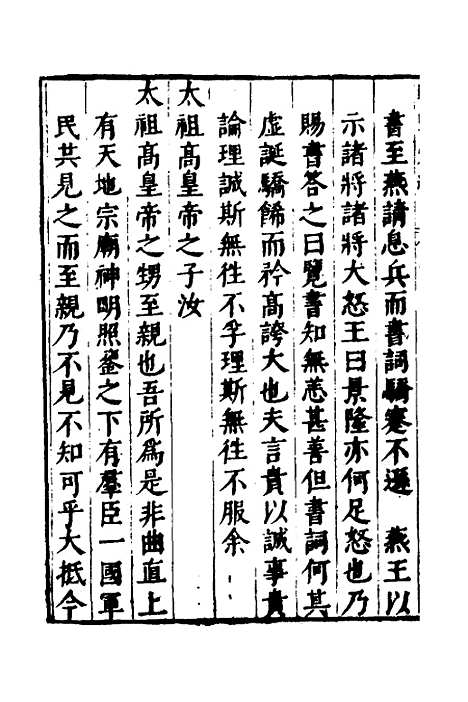 書至燕請息兵而書詞驕蹇不遜　燕王以
示諸將諸將大怒王曰景隆亦何足怒也乃
賜書答之曰覽書知無恙甚善但書詞何其
虛誕驕餙而矜高誇大也夫言貴以誠事貴
論理誠斯無徃不孚理斯無徃不服余
太祖高皇帝之子汝
太祖高皇帝之甥至親也吾所為是非曲直上
有天地宗廟神明照鉴之下有羣臣一國軍
民共見之而至親乃不見不知可乎大抵今